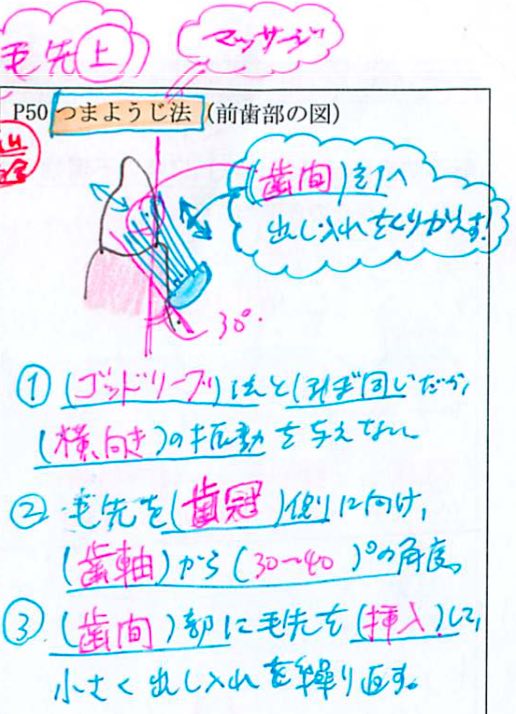 毛先上
マッサージ
P50 つまようじ法 (前歯部の図)
(歯間)を1へ
出し入れをくりかえす!
30°
① (ゴッドリーブ)法と(ほぼ同じ)だが、
(横向き)の振動を与えない
② 毛先を(歯冠)側に向け、
(歯軸)から(30〜40)°の角度。
③ (歯間)部に毛先を(挿入)して、
小さく出し入れを繰り返す。